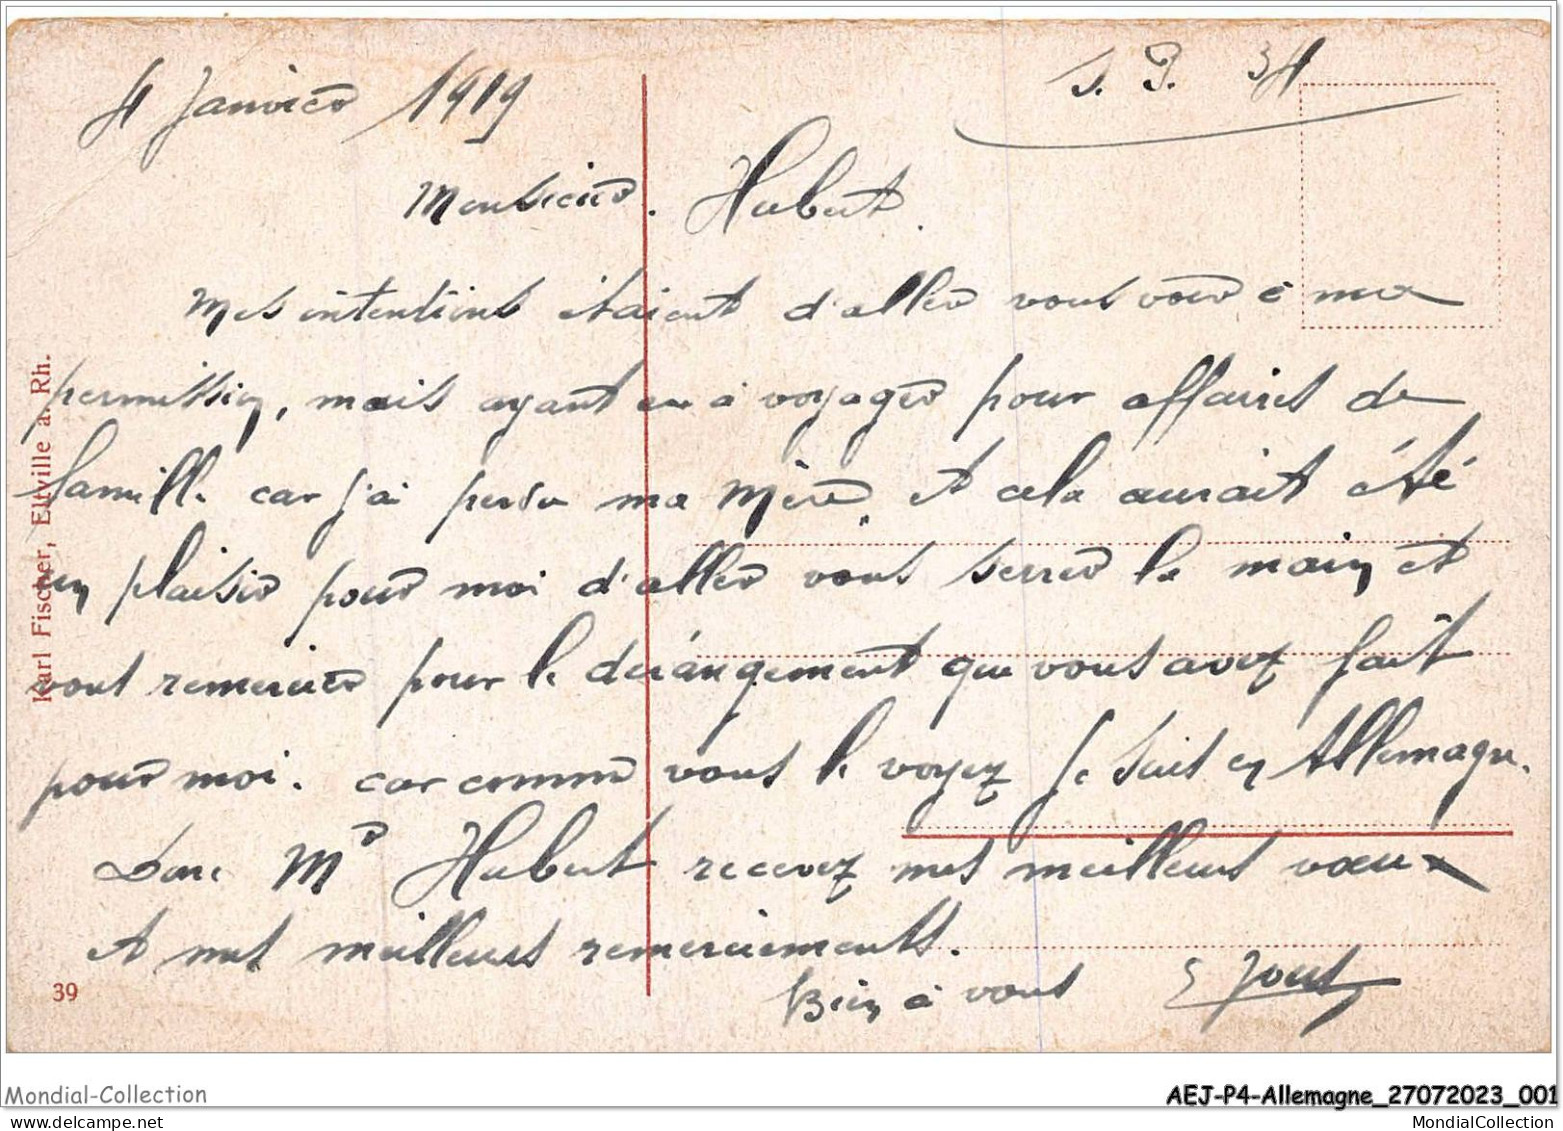 4 Janvier 1919
S. P. 34
Monsieur. Hubert.
Mes intentions étaient d'aller vous voir à ma
permission, mais ayant eu à voyager pour affaires de
famille car j'ai perdu ma Mère, et cela aurait été
un plaisir pour moi d'aller vous serrer la main et
vous remercier pour le dérangement que vous avez fait
pour moi. car comme vous le voyez Je suis en Allemagne.
Donc Mr Hubert recevez mes meilleurs vœux
et mes meilleurs remerciements.
Bien à vous
Karl Fischer, Eltville a. Rh.
39
Mondial-Collection
AEJ-P4-Allemagne_27072023_001
delcampe.net
MondialCollection